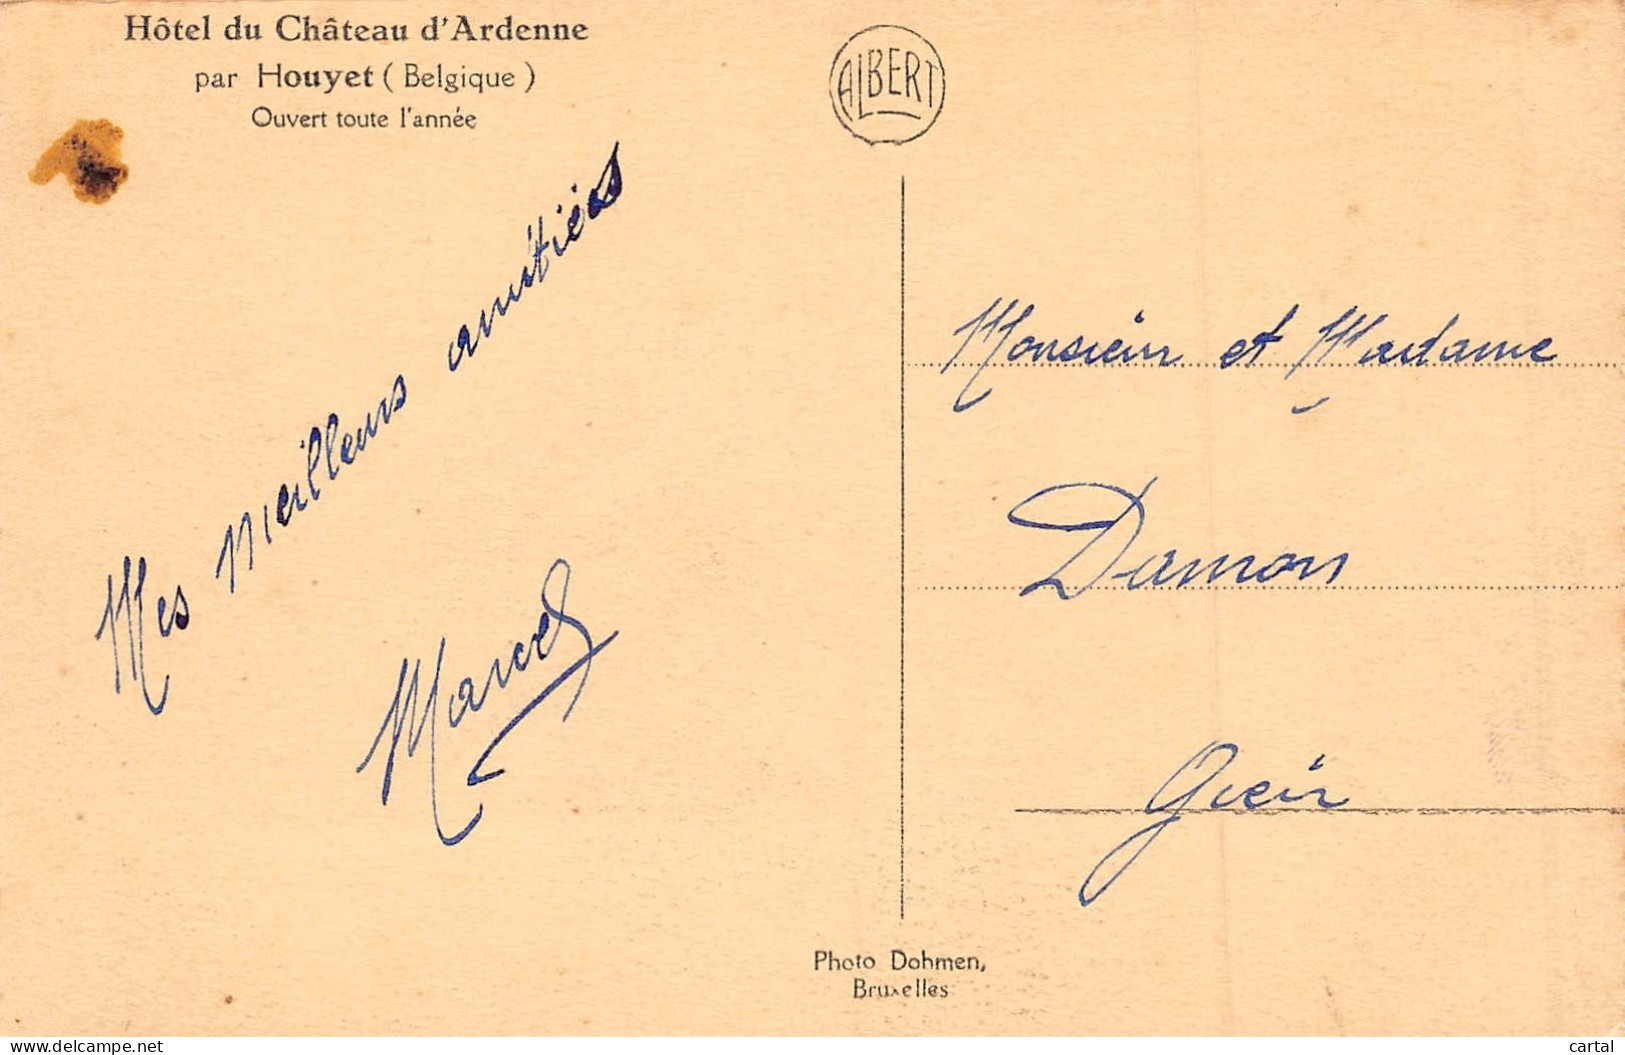 Hôtel du Château d'Ardenne
par Houyet ( Belgique )
Ouvert toute l'année
ALBERT
Mes meilleurs amitiés
Marcel
Monsieur et Madame
Damon
Photo Dohmen,
Bruxelles
www.delcampe.net
cartal